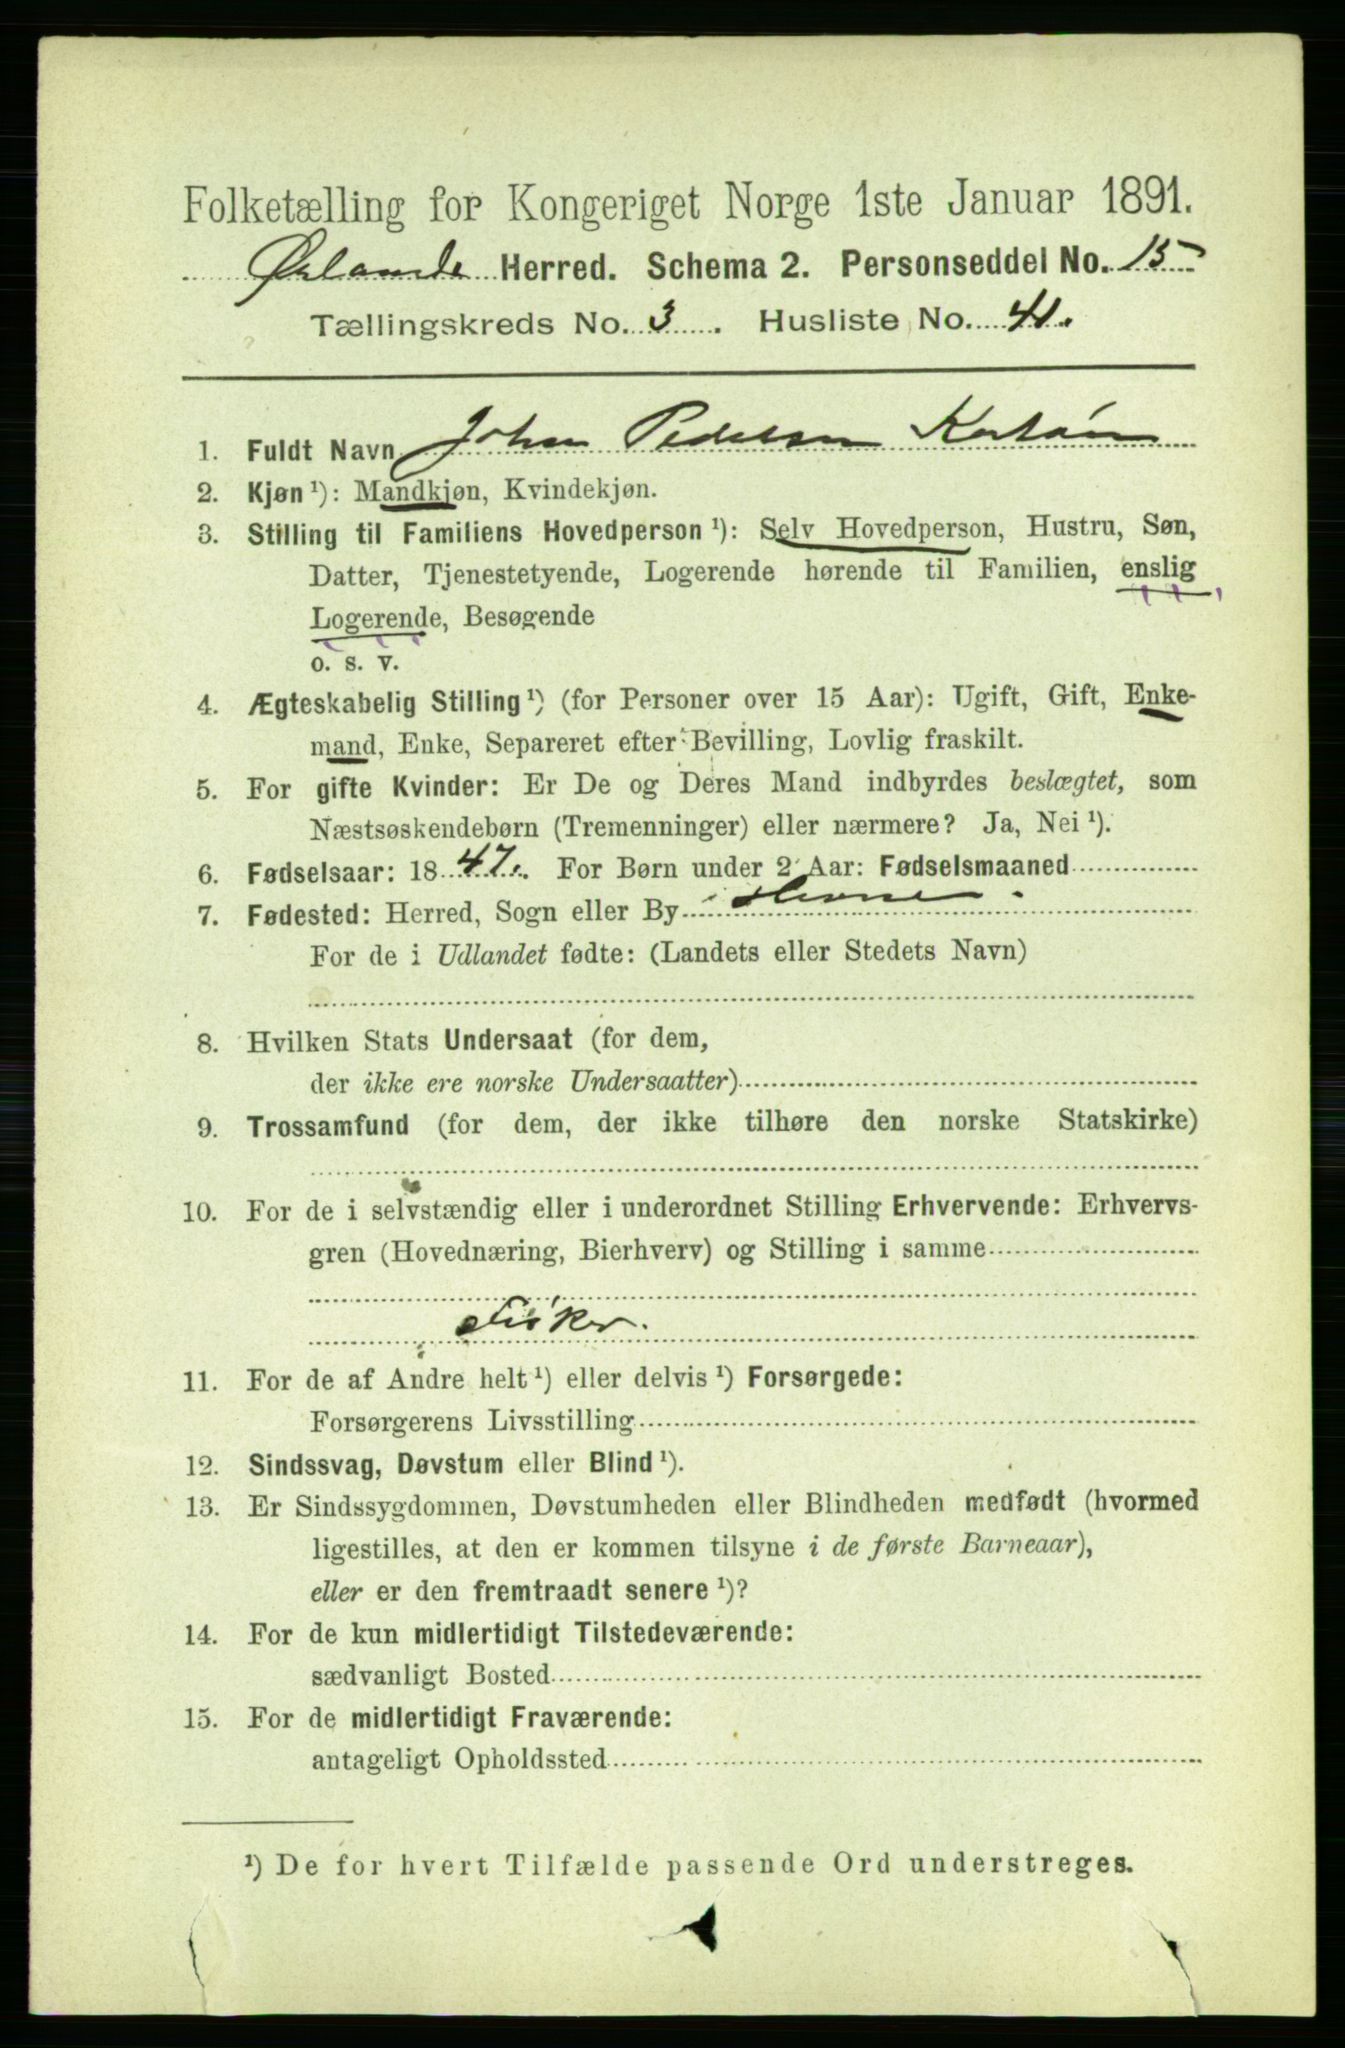 Folketælling for Kongeriget Norge 1ste Januar 1891.
Ørlands Herred. Schema 2. Personseddel No. 15
Tællingskreds No. 3. Husliste No. 41.
1. Fuldt Navn Johan Pedersen
2. Kjøn ¹): Mandkjøn, Kvindekjøn.
3. Stilling til Familiens Hovedperson ¹): Selv Hovedperson, Hustru, Søn,
Datter, Tjenestetyende, Logerende hørende til Familien, enslig
Logerende, Besøgende
o. s. v.
4. Ægteskabelig Stilling ¹) (for Personer over 15 Aar): Ugift, Gift, Enke-
mand, Enke, Separeret efter Bevilling, Lovlig fraskilt.
5. For gifte Kvinder: Er De og Deres Mand indbyrdes beslægtet, som
Næstsøskendebørn (Tremenninger) eller nærmere? Ja, Nei ¹).
6. Fødselsaar: 1847. For Børn under 2 Aar: Fødselsmaaned
7. Fødested: Herred, Sogn eller By
For de i Udlandet fødte: (Landets eller Stedets Navn)
8. Hvilken Stats Undersaat (for dem,
der ikke ere norske Undersaatter)
9. Trossamfund (for dem, der ikke tilhøre den norske Statskirke)
10. For de i selvstændig eller i underordnet Stilling Erhvervende: Erhvervs-
gren (Hovednæring, Bierhverv) og Stilling i samme
Fisker.
11. For de af Andre helt ¹) eller delvis ¹) Forsørgede:
Forsørgerens Livsstilling
12. Sindssvag, Døvstum eller Blind ¹).
13. Er Sindssygdommen, Døvstumheden eller Blindheden medfødt (hvormed
ligestilles, at den er kommen tilsyne i de første Barneaar),
eller er den fremtraadt senere ¹)?
14. For de kun midlertidigt Tilstedeværende:
sædvanligt Bosted
15. For de midlertidigt Fraværende:
antageligt Opholdssted
¹) De for hvert Tilfælde passende Ord understreges.